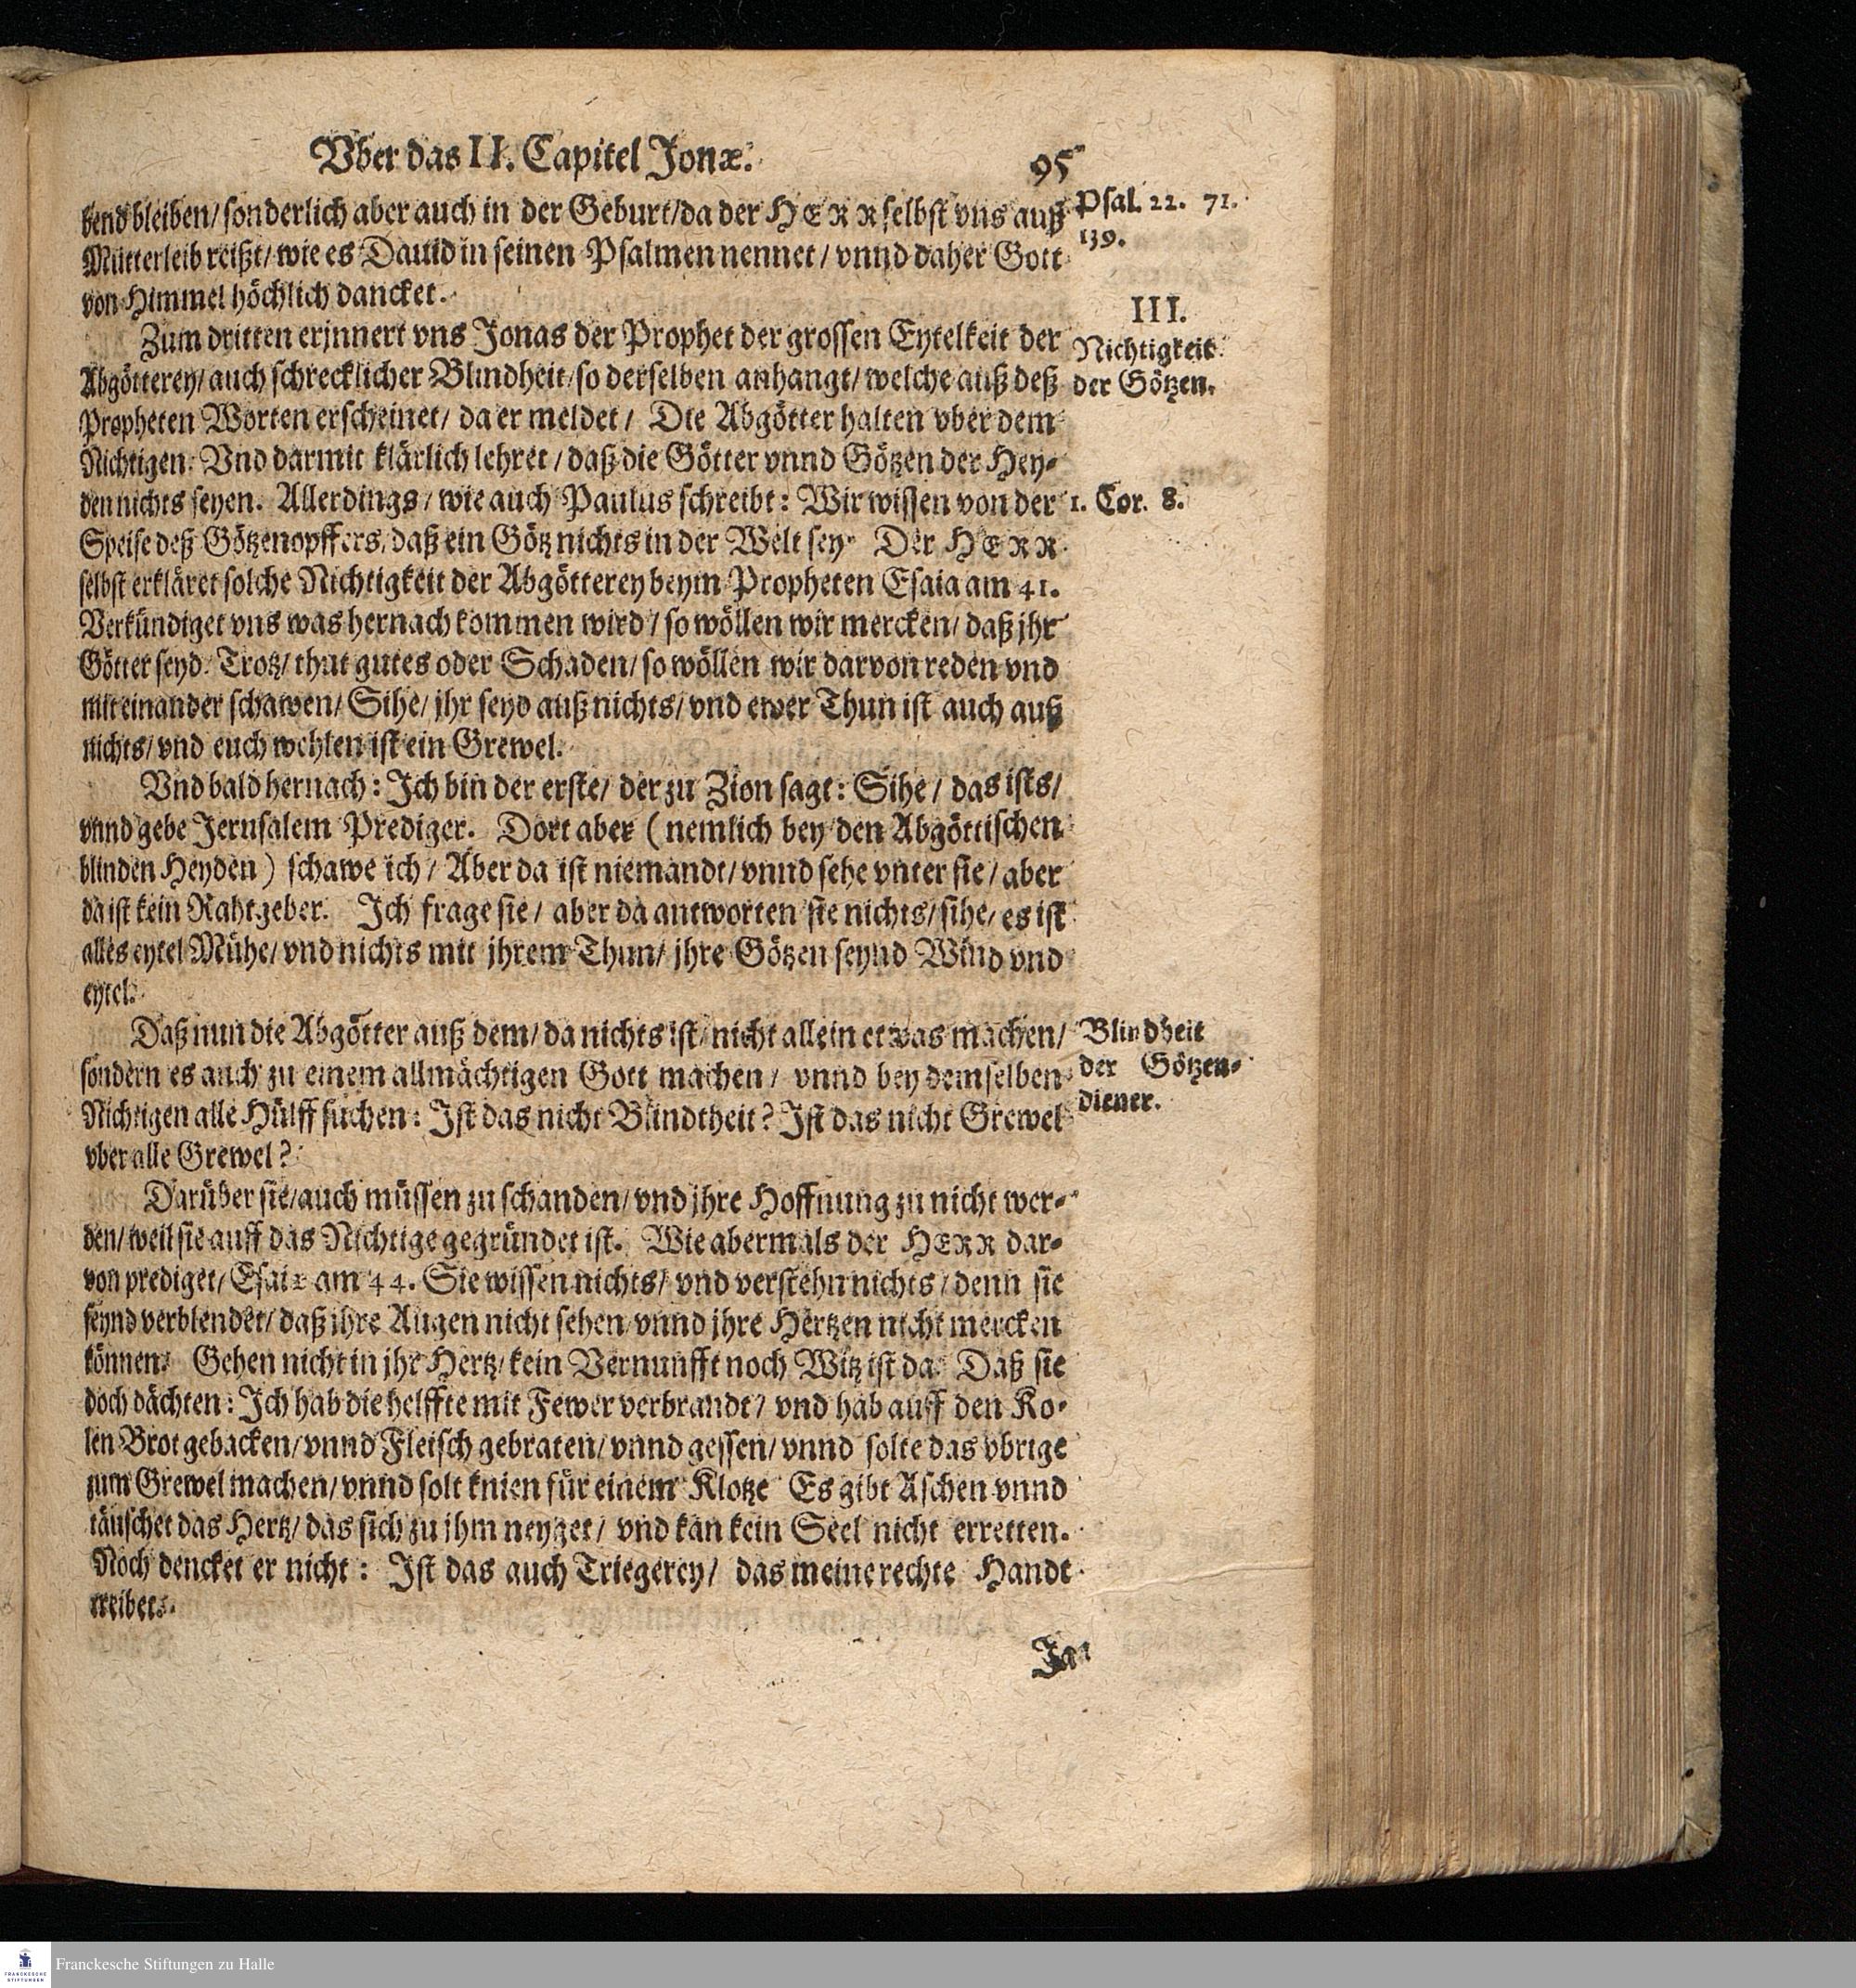 Vber das II. Capitel Jonæ.
95
bend bleiben/ sonderlich aber auch in der Geburt/ da der HERR selbst vns auß
Mutterleib reißt/ wie es Dauid in seinen Psalmen nennet/ vnnd daher Gott
von Himmel höchlich dancket.
Psal. 22. 71.
139.
Zum dritten erjnnert vns Jonas der Prophet der grossen Eytelkeit der
Abgötterey/ auch schrecklicher Blindheit/ so derselben anhangt/ welche auß deß
Propheten Worten erscheinet/ da er meldet/ Die Abgötter halten vber dem
Nichtigen: Vnd darmit klärlich lehret/ daß die Götter vnnd Götzen der Hey-
den nichts seyen. Allerdings/ wie auch Paulus schreibt: Wir wissen von der
Speise deß Götzenopffers/ daß ein Götz nichts in der Welt sey. Der HERR
selbst erkläret solche Nichtigkeit der Abgötterey beym Propheten Esaia am 41.
Verkündiget vns was hernach kommen wird/ so wöllen wir mercken/ daß jhr
Götter seyd. Trotz/ thut gutes oder Schaden/ so wöllen wir darvon reden vnd
mit einander schawen/ Sihe/ jhr seyd auß nichts/ vnd ewer Thun ist auch auß
nichts/ vnd euch wehlen ist ein Grewel.
III.
Nichtigkeit
der Götzen.
1. Cor. 8.
Vnd bald hernach: Ich bin der erste/ der zu Zion sagt: Sihe/ das ists/
vnnd gebe Jerusalem Prediger. Dort aber (nemlich bey den Abgöttischen
blinden Heyden) schawe ich/ Aber da ist niemandt/ vnnd sehe vnter sie/ aber
da ist kein Rahtgeber. Ich frage sie/ aber da antworten sie nichts/ sihe/ es ist
alles eytel Mühe/ vnd nichts mit jhrem Thun/ jhre Götzen seynd Wind vnd
eytel.
Daß nun die Abgötter auß dem/ da nichts ist/ nicht allein etwas machen/
sondern es auch zu einem allmächtigen Gott machen/ vnnd bey demselben
Nichtigen alle Hülff suchen: Ist das nicht Blindtheit? Ist das nicht Grewel
vber alle Grewel?
Blindheit
der Götzen-
diener.
Darüber sie/ auch müssen zu schanden/ vnd jhre Hoffnung zu nicht wer-
den/ weil sie auff das Nichtige gegründet ist. Wie abermals der HERR dar-
von prediget/ Esaiæ am 44. Sie wissen nichts/ vnd verstehn nichts/ denn sie
seynd verblendet/ daß jhre Augen nicht sehen/ vnnd jhre Hertzen nicht mercken
können: Gehen nicht in jhr Hertz/ kein Vernunfft noch Witz ist da: Daß sie
doch dächten: Ich hab die helffte mit Fewer verbrandt/ vnd hab auff den Ko-
len Brot gebacken/ vnnd Fleisch gebraten/ vnnd gessen/ vnnd solte das vbrige
zum Grewel machen/ vnnd solt knien für einem Klotze Es gibt Aschen vnnd
täuschet das Hertz/ das sich zu jhm neyget/ vnd kan kein Seel nicht erretten.
Noch dencket er nicht: Ist das auch Triegerey/ das meine rechte Handt
treibet.
Ja
Franckesche Stiftungen zu Halle
FRANCKESCHE
STIFTUNGEN